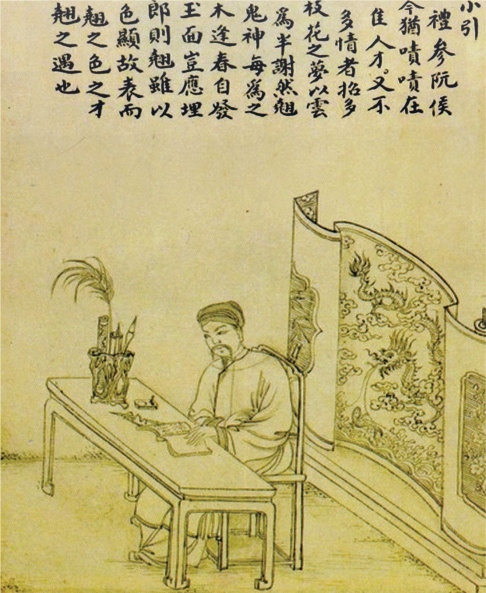 小引
禮參阮侯
今猶嘖嘖在
佳人才又不
多情者招多
枝花之夢以雲
為半謝然翹
鬼神每為之
木逢春自發
玉面豈應埋
郎則翹雖以
色顯故表而
翹之色之才
翹之遇也